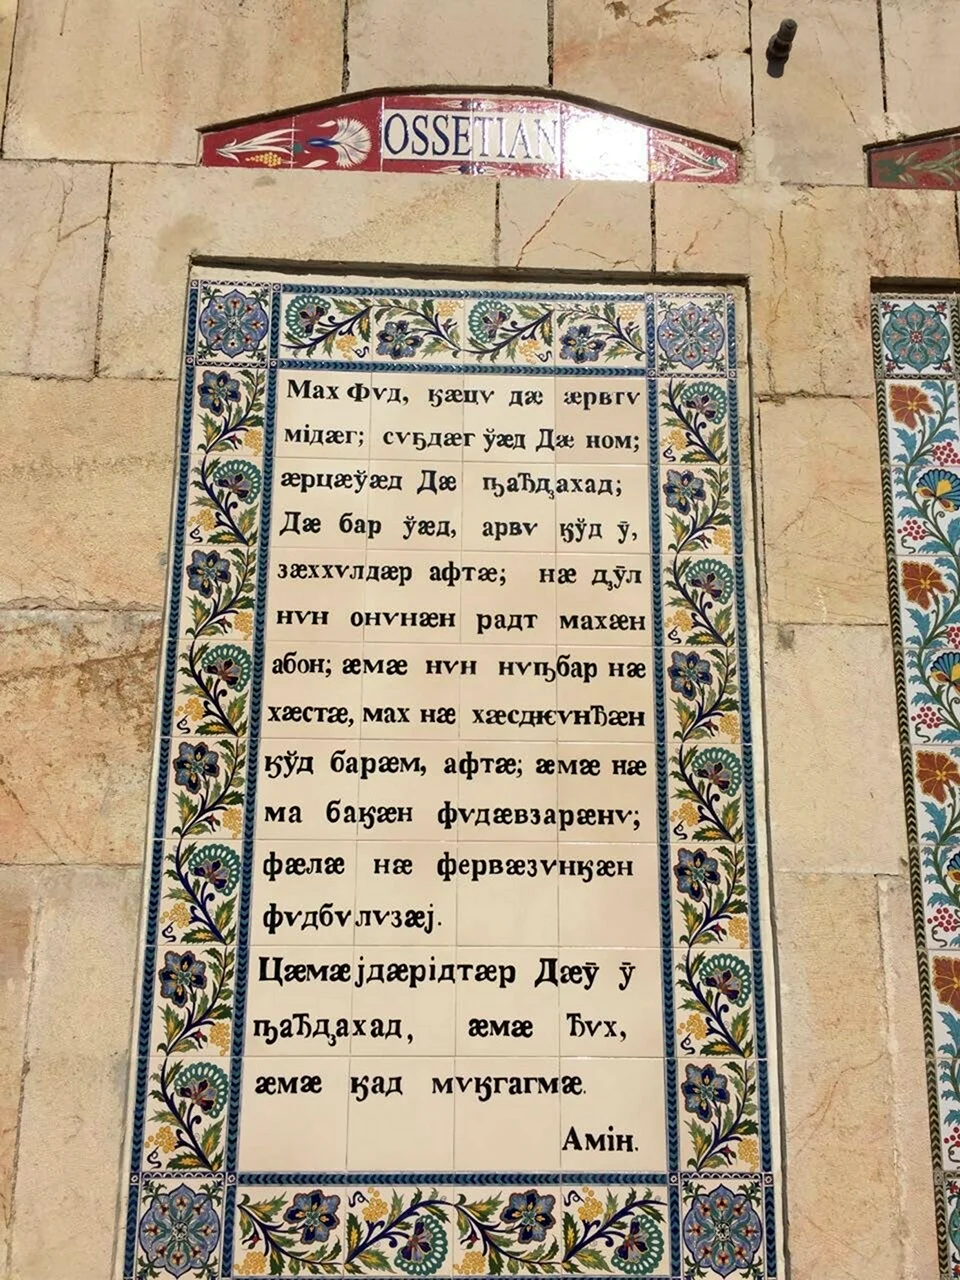 OSSETIAN
Мах Фѵд, ӄæцѵ дæ æрвгѵ
мідæг; сѵҕдæг ўæд Дæ ном;
æрцæўæд Дæ ҧаЂдȥахад;
Дæ бар ўæд, арвѵ ӄўд ӯ,
зæххѵлдæр афтæ; нæ дȥӯл
нѵн онѵнæн радт махæн
абон; æмæ нѵн нѵҧбар нæ
хæстæ, мах нæ хæсджѵнЂæн
ӄўд барæм, афтæ; æмæ нæ
ма баӄæн фѵдæвзарæнѵ;
фæлæ нæ фервæзѵнӄæн
фѵдбѵлѵзæј.
Цæмæјдæрідтæр Дæӯ ӯ
ҧаЂдȥахад, æмæ Ђѵх,
æмæ ӄад мѵӄгагмæ.
Амін.